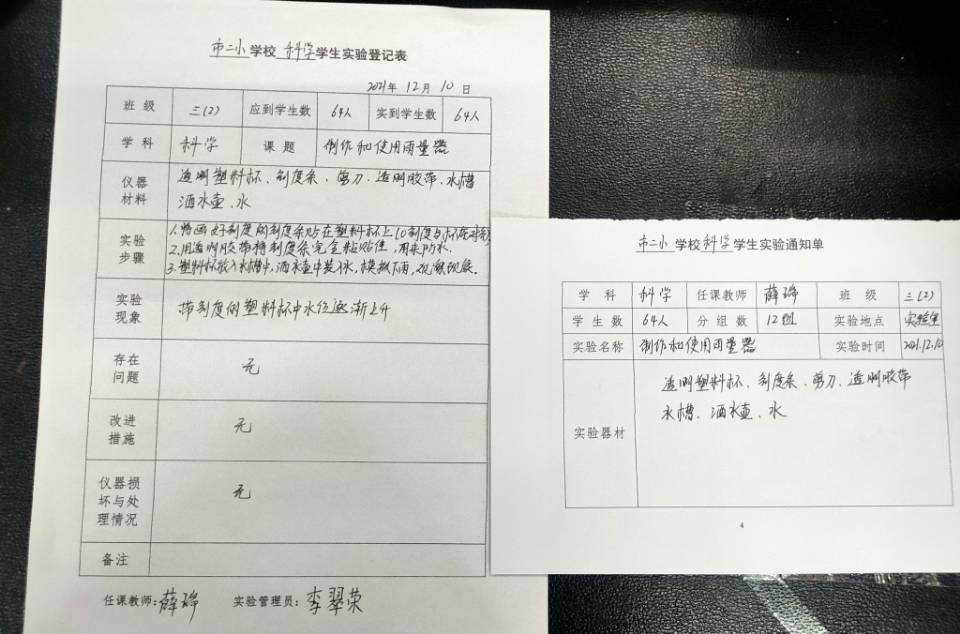 市二小学校科学学生实验登记表
2021年12月10日
班级 三(2) 应到学生数 64人 实到学生数 64人
学科 科学 课题 制作和使用雨量器
仪器材料 透明塑料杯、刻度条、剪刀、透明胶带、水槽
洒水壶、水
实验步骤 1.将画好刻度的刻度条贴在塑料杯上(0刻度与杯底对齐)
2.用透明胶带将刻度条完全粘贴住,用来防水.
3.塑料杯放入水槽中,洒水壶中装入水,模拟下雨,观察现象.
实验现象 带刻度的塑料杯中水位逐渐上升
存在问题 无
改进措施 无
仪器损坏与处理情况 无
备注
任课教师:薛瑞 实验管理员:李翠荣
市二小学校科学学生实验通知单
学科 科学 任课教师 薛瑞 班级 三(2)
学生数 64人 分组数 12组 实验地点 实验室
实验名称 制作和使用雨量器 实验时间 2021.12.10
实验器材 透明塑料杯、刻度条、剪刀、透明胶带
水槽、洒水壶、水
4